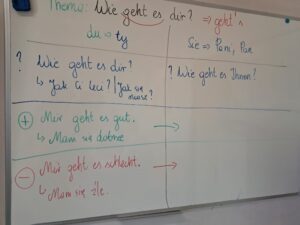 Thema: Wie geht es dir? => geht's
du → ty
Sie => Pani, Pan
? Wie geht es dir?
↳ Jak Ci leci? / Jak się
masz?
? Wie geht es Ihnen?
+ Mir geht es gut.
↳ Mam się dobrze
- Mir geht es schlecht.
↳ Mam się źle.